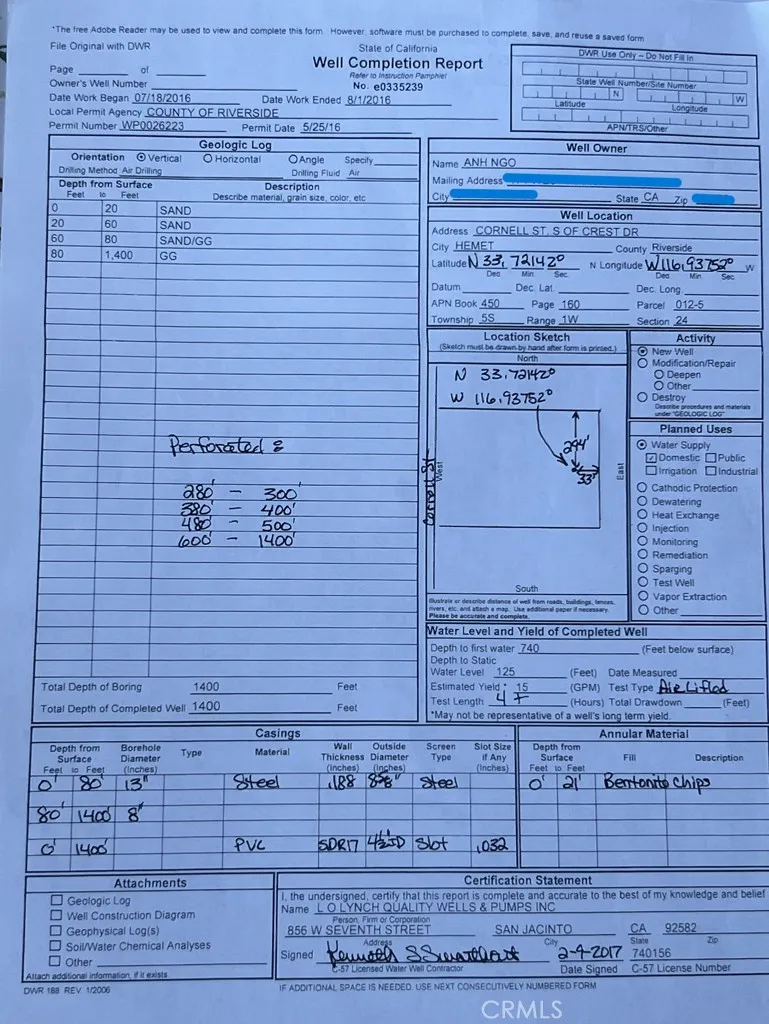 *The free Adobe Reader may be used to view and complete this form. However, software must be purchased to complete, save, and reuse a saved form.
File Original with DWR
State of California
Well Completion Report
Refer to Instruction Pamphlet
No. e0335239
Page of
Owner's Well Number
Date Work Began 07/18/2016 Date Work Ended 8/1/2016
Local Permit Agency COUNTY OF RIVERSIDE
Permit Number WP0026223 Permit Date 5/25/16
DWR Use Only – Do Not Fill In
State Well Number/Site Number
N W
Latitude Longitude
APN/TRS/Other
Geologic Log
Orientation Vertical Horizontal Angle Specify
Drilling Method Air Drilling Drilling Fluid Air
Depth from Surface Description
Feet to Feet Describe material, grain size, color, etc
0 20 SAND
20 60 SAND
60 80 SAND/GG
80 1,400 GG
Perforated :
280' – 300'
380' – 400'
480' – 500'
600' – 1400'
Total Depth of Boring 1400 Feet
Total Depth of Completed Well 1400 Feet
Well Owner
Name ANH NGO
Mailing Address
City State CA Zip
Well Location
Address CORNELL ST. S OF CREST DR
City HEMET County Riverside
Latitude N 33.72142° N Longitude W116.93752° W
Deg. Min. Sec. Deg. Min. Sec.
Datum Dec. Lat. Dec. Long.
APN Book 450 Page 160 Parcel 012-5
Township 5S Range 1W Section 24
Location Sketch
(Sketch must be drawn by hand after form is printed.)
North
N 33.72142°
W 116.93752°
294'
33'
West
Cornell St
East
South
Illustrate or describe distance of well from roads, buildings, fences,
rivers, etc. and attach a map. Use additional paper if necessary.
Please be accurate and complete.
Activity
New Well
Modification/Repair
Deepen
Other
Destroy
Describe procedures and materials
under "GEOLOGIC LOG"
Planned Uses
Water Supply
Domestic Public
Irrigation Industrial
Cathodic Protection
Dewatering
Heat Exchange
Injection
Monitoring
Remediation
Sparging
Test Well
Vapor Extraction
Other
Water Level and Yield of Completed Well
Depth to first water 740 (Feet below surface)
Depth to Static
Water Level 125 (Feet) Date Measured
Estimated Yield * 15 (GPM) Test Type Air Lifted
Test Length 4 + (Hours) Total Drawdown (Feet)
*May not be representative of a well's long term yield.
Casings
Depth from Surface Feet to Feet Borehole Diameter (Inches) Type Material Wall Thickness (Inches) Outside Diameter (Inches) Screen Type Slot Size if Any (Inches)
0' 80' 13" Steel .188 8 5/8" Steel
80' 1400' 8"
0' 1400' PVC SDR17 4 1/2 ID Slot .032
Annular Material
Depth from Surface Feet to Feet Fill Description
0' 21' Bentonite Chips
Attachments
Geologic Log
Well Construction Diagram
Geophysical Log(s)
Soil/Water Chemical Analyses
Other
Attach additional information, if it exists.
Certification Statement
I, the undersigned, certify that this report is complete and accurate to the best of my knowledge and belief
Name L O LYNCH QUALITY WELLS & PUMPS INC
Person, Firm or Corporation
856 W SEVENTH STREET SAN JACINTO CA 92582
Address City State Zip
Signed Kenneth S Swarthout 2-4-2017 740156
C-57 Licensed Water Well Contractor Date Signed C-57 License Number
DWR 188 REV. 1/2006
IF ADDITIONAL SPACE IS NEEDED, USE NEXT CONSECUTIVELY NUMBERED FORM
CRMLS